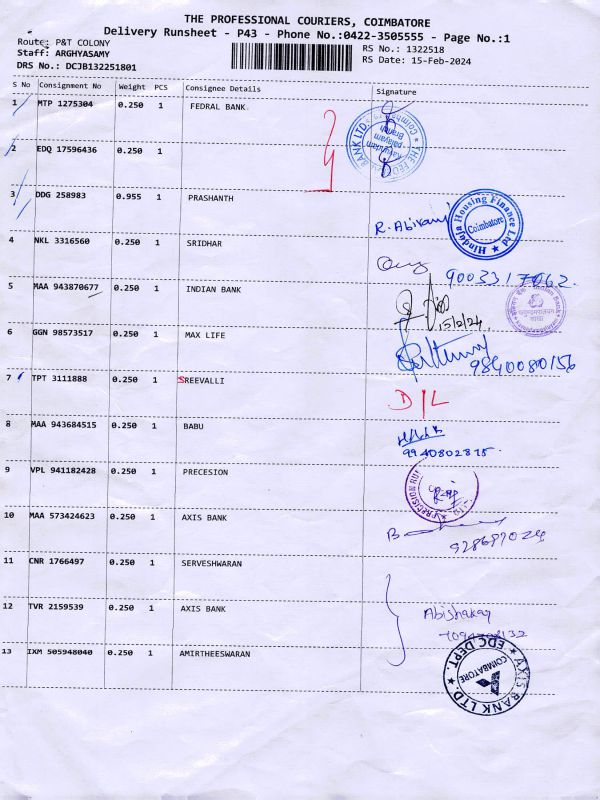 THE PROFESSIONAL COURIERS, COIMBATORE
Delivery Runsheet - P43 - Phone No.:0422-3505555 - Page No.:1
Route: P&T COLONY
Staff: ARGHYASAMY
DRS No.: DCJB132251801
RS No.: 1322518
RS Date: 15-Feb-2024
S No Consignment No Weight PCS Consignee Details Signature
1 MTP 1275304 0.250 1 FEDRAL BANK
2 EDQ 17596436 0.250 1
3 DDG 258983 0.955 1 PRASHANTH
R. Abirami
Hinduja Housing Finance Ltd
Coimbatore
4 NKL 3316560 0.250 1 SRIDHAR
9003317062.
5 MAA 943870677 0.250 1 INDIAN BANK
15/2/24
Indian Bank
6 GGN 98573517 0.250 1 MAX LIFE
9840080156
7 TPT 3111888 0.250 1 SREEVALLI
D/L
8 MAA 943684515 0.250 1 BABU
9940802875
9 VPL 941182428 0.250 1 PRECESION
10 MAA 573424623 0.250 1 AXIS BANK
11 CNR 1766497 0.250 1 SERVESHWARAN
12 TVR 2159539 0.250 1 AXIS BANK
Abishakay
13 IXM 505948040 0.250 1 AMIRTHEESWARAN
AXIS BANK LTD.
EDC DEPT.
COIMBATORE